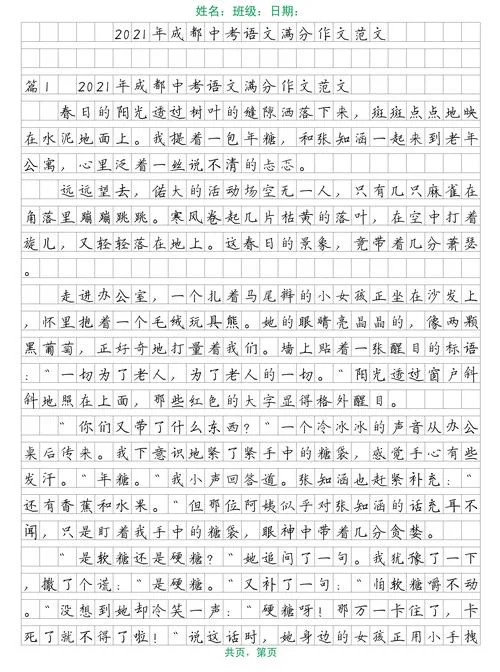 姓名：班级：日期：
2021年成都中考语文满分作文范文
篇1 2021年成都中考语文满分作文范文
春日的阳光透过树叶的缝隙洒落下来，斑斑点点地映
在水泥地面上。我提着一包年糖，和张知涵一起来到老年
公寓，心里泛着一丝说不清的忐忑。
远远望去，偌大的活动场空无一人，只有几只麻雀在
角落里蹦蹦跳跳。寒风卷起几片枯黄的落叶，在空中打着
旋儿，又轻轻落在地上。这春日的景象，竟带着几分萧瑟
。
走进办公室，一个扎着马尾辫的小女孩正坐在沙发上
，怀里抱着一个毛绒玩具熊。她的眼睛亮晶晶的，像两颗
黑葡萄，正好奇地打量着我们。墙上贴着一张醒目的标语
："一切为了老人，为了老人的一切。"阳光透过窗户斜
斜地照在上面，那些红色的大字显得格外醒目。
"你们又带了什么东西？"一个冷冰冰的声音从办公
桌后传来。我下意识地紧了紧手中的糖袋，感觉手心有些
发汗。"年糖。"我小声回答道。张知涵也赶紧补充："
还有香蕉和水果。"但那位阿姨似乎对张知涵的话充耳不
闻，只是盯着我手中的糖袋，眼神中带着几分贪婪。
"是软糖还是硬糖？"她追问了一句。我犹豫了一下
，撒了个谎："是硬糖。"又补了一句："怕软糖嚼不动
。"没想到她却冷笑一声："硬糖呀！那万一卡住了，卡
死了就不得了啦！"说这话时，她身边的女孩正用小手拽
共页，第页